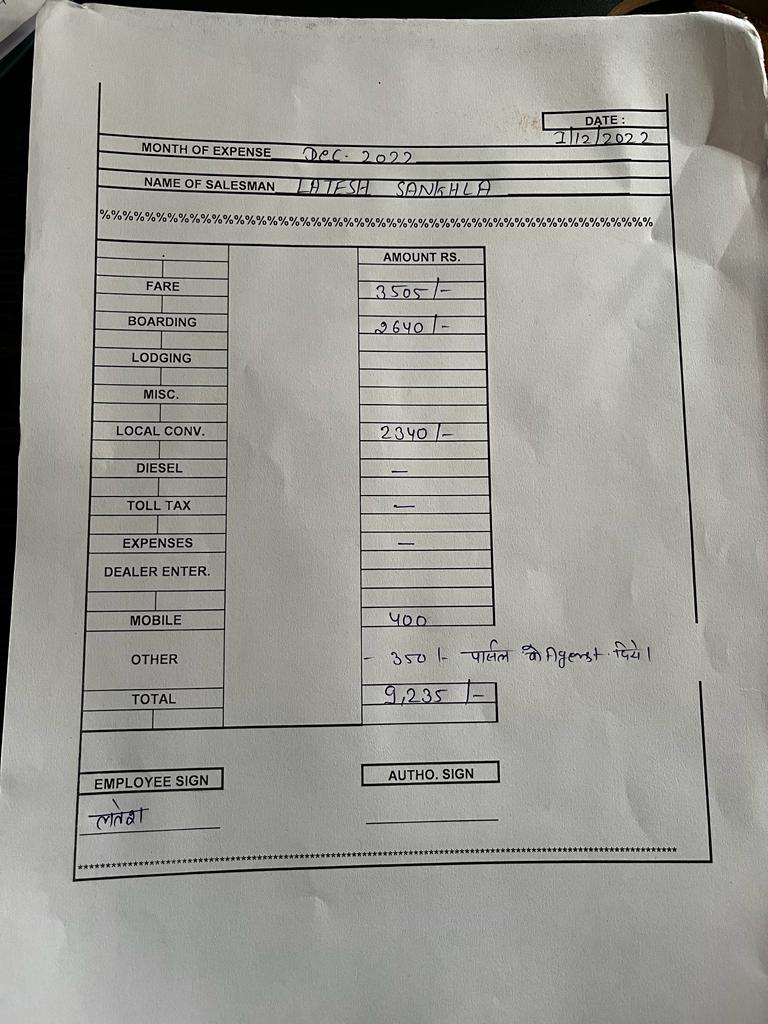 DATE :
1/12/2022
MONTH OF EXPENSE Dec. 2022
NAME OF SALESMAN LATESH SANKHLA
%%%%%%%%%%%%%%%%%%%%%%%%%%%%%%%%%%%%%%%%%%%%%%%%%%%%%%%%%%
AMOUNT RS.
FARE 3505/-
BOARDING 2640/-
LODGING
MISC.
LOCAL CONV. 2340/-
DIESEL —
TOLL TAX —
EXPENSES —
DEALER ENTER.
MOBILE 400
OTHER - 350/- पार्सल के Agenst दिये।
TOTAL 9,235/-
EMPLOYEE SIGN AUTHO. SIGN
लतेश
****************************************************************************************************